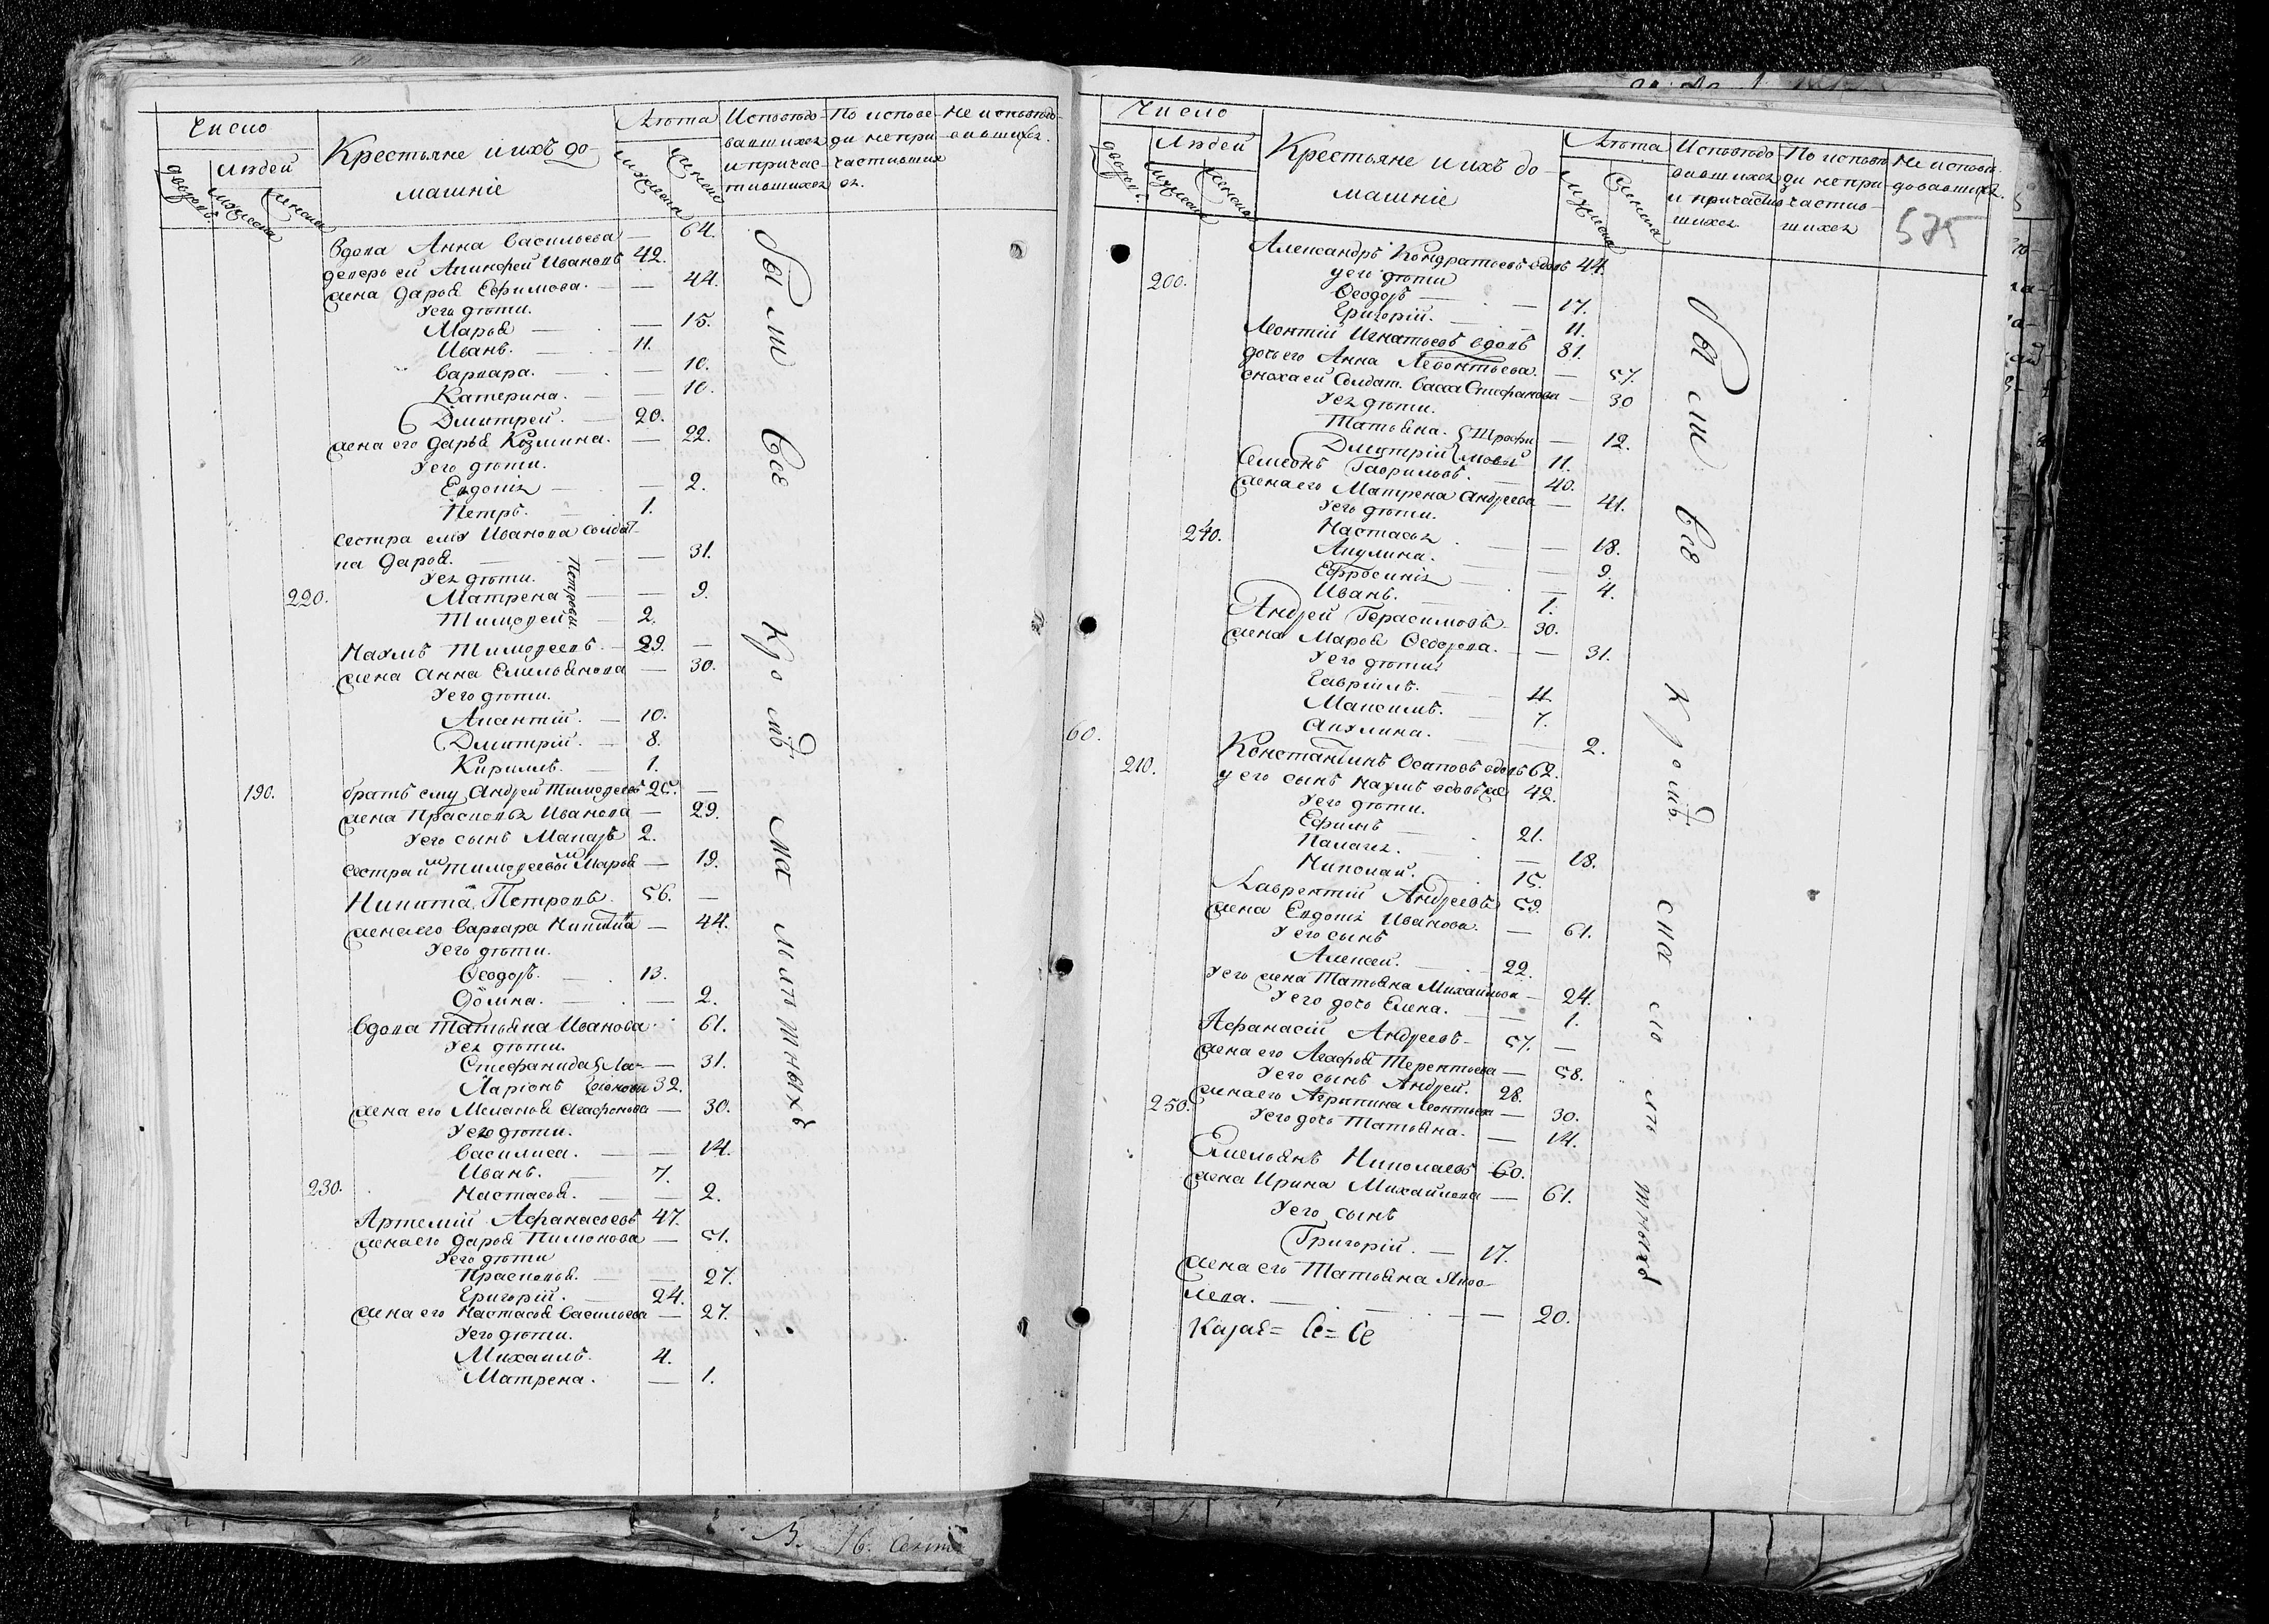 Число
Людей
дворовъ.
мужеска
женска
Крестьяне и ихъ до-
машніе
Лѣта
мужеска
женска
Исповѣдо-
вавшихся
и причас-
тившихся
По испове-
ди не при-
частивших
ся.
Не исповѣдо-
вавшихся.
Вдова Анна Васильева — 64.
деверь ей Алиферй Ивановъ 42.
жена Дарья Ефимова. — 44.
У его дѣти.
Марья — 15.
Иванъ. — 11.
Варвара. — 10.
Катерина. — 10.
Дмитрей. — 20.
жена его Дарья Козмина. — 22.
У его дѣти.
Евдокія — 2.
Петръ. 1.
Сестра ему Иванова солдат-
ка Дарья. — 31.
У ея дѣти.
220. Матрена — 9.
Тимоѳей — 2.
Петровы.
Наумъ Тимоѳеевъ. — 29. —
жена Анна Емельянова — 30.
У его дѣти.
Акантій. — 10.
Дмитрій. — 8.
Кирилъ. — 1.
190. братъ ему Андрей Тимоѳеевъ 25. —
жена Прасковья Иванова — 29.
У его сынъ Макаръ 2.
сестра им Тимоѳеевым Марья — 19.
Никита Петровъ. 56. —
жена его Варвара Никитина — 44.
У его дѣти.
Ѳеодоръ. — 13.
Ѳёкла. — 2.
Вдова Татьяна Иванова 61.
У ея дѣти.
Стефанида Ла- — 31.
Ларіонъ ріоновы 32.
жена его Меланья Агафонова — 30.
У его дѣти.
Василиса. — 14.
Иванъ. — 7.
230. Настасья. — 2.
Артемій Афанасьевъ 47.
жена его Дарья Пимонова — 51.
У его дѣти
Прасковья. — 27.
Григорій. — 24.
жена его Настасья Васильева — 27.
У его дѣти.
Михаилъ. 4.
Матрена. — 1.
Были все кромѣ малолѣтныхъ
Число
Людей
дворовъ.
мужеска
женска
Крестьяне и ихъ до-
машніе
Лѣта
мужеска
женска
Исповѣдо-
вавшихся
и причастив
шихся
По испове
ди не при-
частив-
шихся
Не исповѣ-
довавшихся.
575
Александръ Кондратьевъ вдовъ 44.
у его дѣти
200. Ѳеодоръ — 17.
Григорій. — 11.
Леонтій Игнатьевъ вдовъ 81.
дочь его Анна Левонтьева. — 57.
сноха ей Солдат. Васса Стефанова — 30
У ея дѣти.
Татьяна. Трофи — 12.
Дмитрій мовы 11.
Семенъ Гаврильевъ. — 40.
жена его Матрена Андреева — 41.
У его дѣти.
240. Настасья — 18.
Акулина. — 9.
Ефросинія — 4.
Иванъ. 1.
Андрей Герасимовъ 30.
жена Марья Ѳедорова. — 31.
У его дѣти.
Гавріилъ. — 11.
Максимъ. — 7.
Акулина. — 2.
60. Константинъ Осиповъ вдовъ 62.
210. у его сынъ Наумъ вдовъ же 42.
У его дѣти.
Ефимъ — 21.
Палагея. — 18.
Николай. 15.
Лаврентій Андреевъ 59.
жена Евдокія Иванова. — 61.
У его сынъ
Алексей. 22.
У его жена Татьяна Михайлова — 24.
У его дочь Елена. — 1.
Афанасій Андреевъ 57. —
жена его Агафья Терентьева — 58.
У его сынъ Андрей. 28.
жена его Агрипина Леонтьева — 30.
250. У его дочь Татьяна. — 14.
Емельянъ Николаевъ 60.
жена Ирина Михайлова — 61.
У его сынъ
Григорій. — 17.
жена его Татьяна Яков-
лева. — 20.
Были все кромѣ малолѣтныхъ